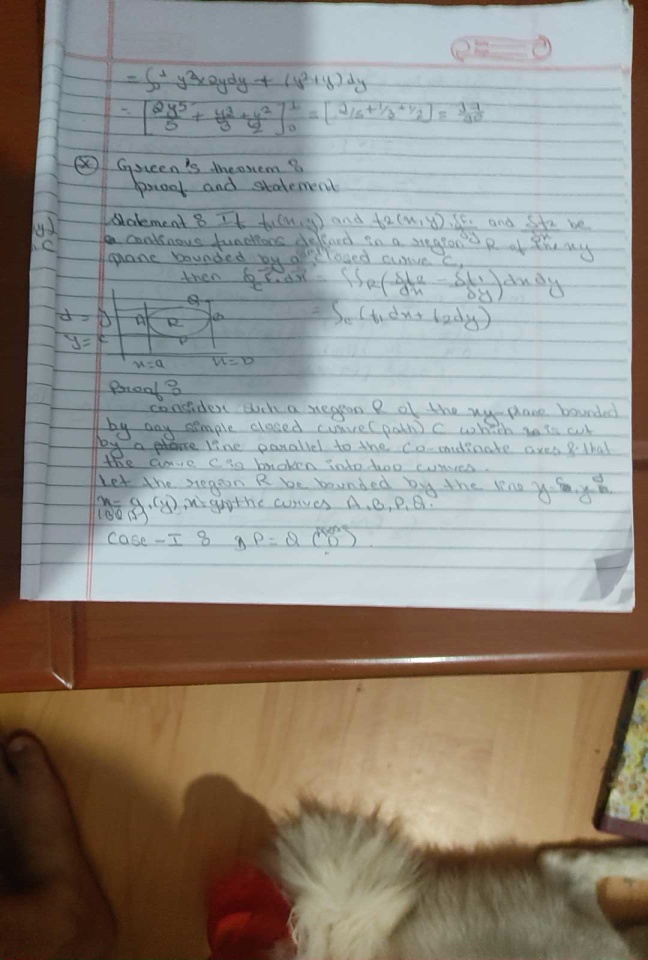 = ∫₀¹ y²x2ydy + (y²+y)dy
= [2y⁵/5 + y³/3 + y²/2]₀¹ = [2/5+1/3+1/2] =
Green's theorem :
proof and statement
Statement : If f₁(x,y) and f₂(x,y), δf₁/δy and δf₂/δx be
a continous functions defined in a region R of the xy
plane bounded by a closed curve C,
then ∫∫R(δf₂/δx - δf₁/δy)dxdy
= ∫c(f₁dx+f₂dy)
Q
d = y
A R B
y = c
P
x=a x=b
Proof :
consider such a region R of the xy-plane bounded
by any simple closed curve(path) C which is cut
by a line parallel to the co-ordinate axes & that
the curve C is broken into two curves.
Let the region R be bounded by the line y=c, y=d,
the curves A, B, P, Q.
Case - I : P = Q